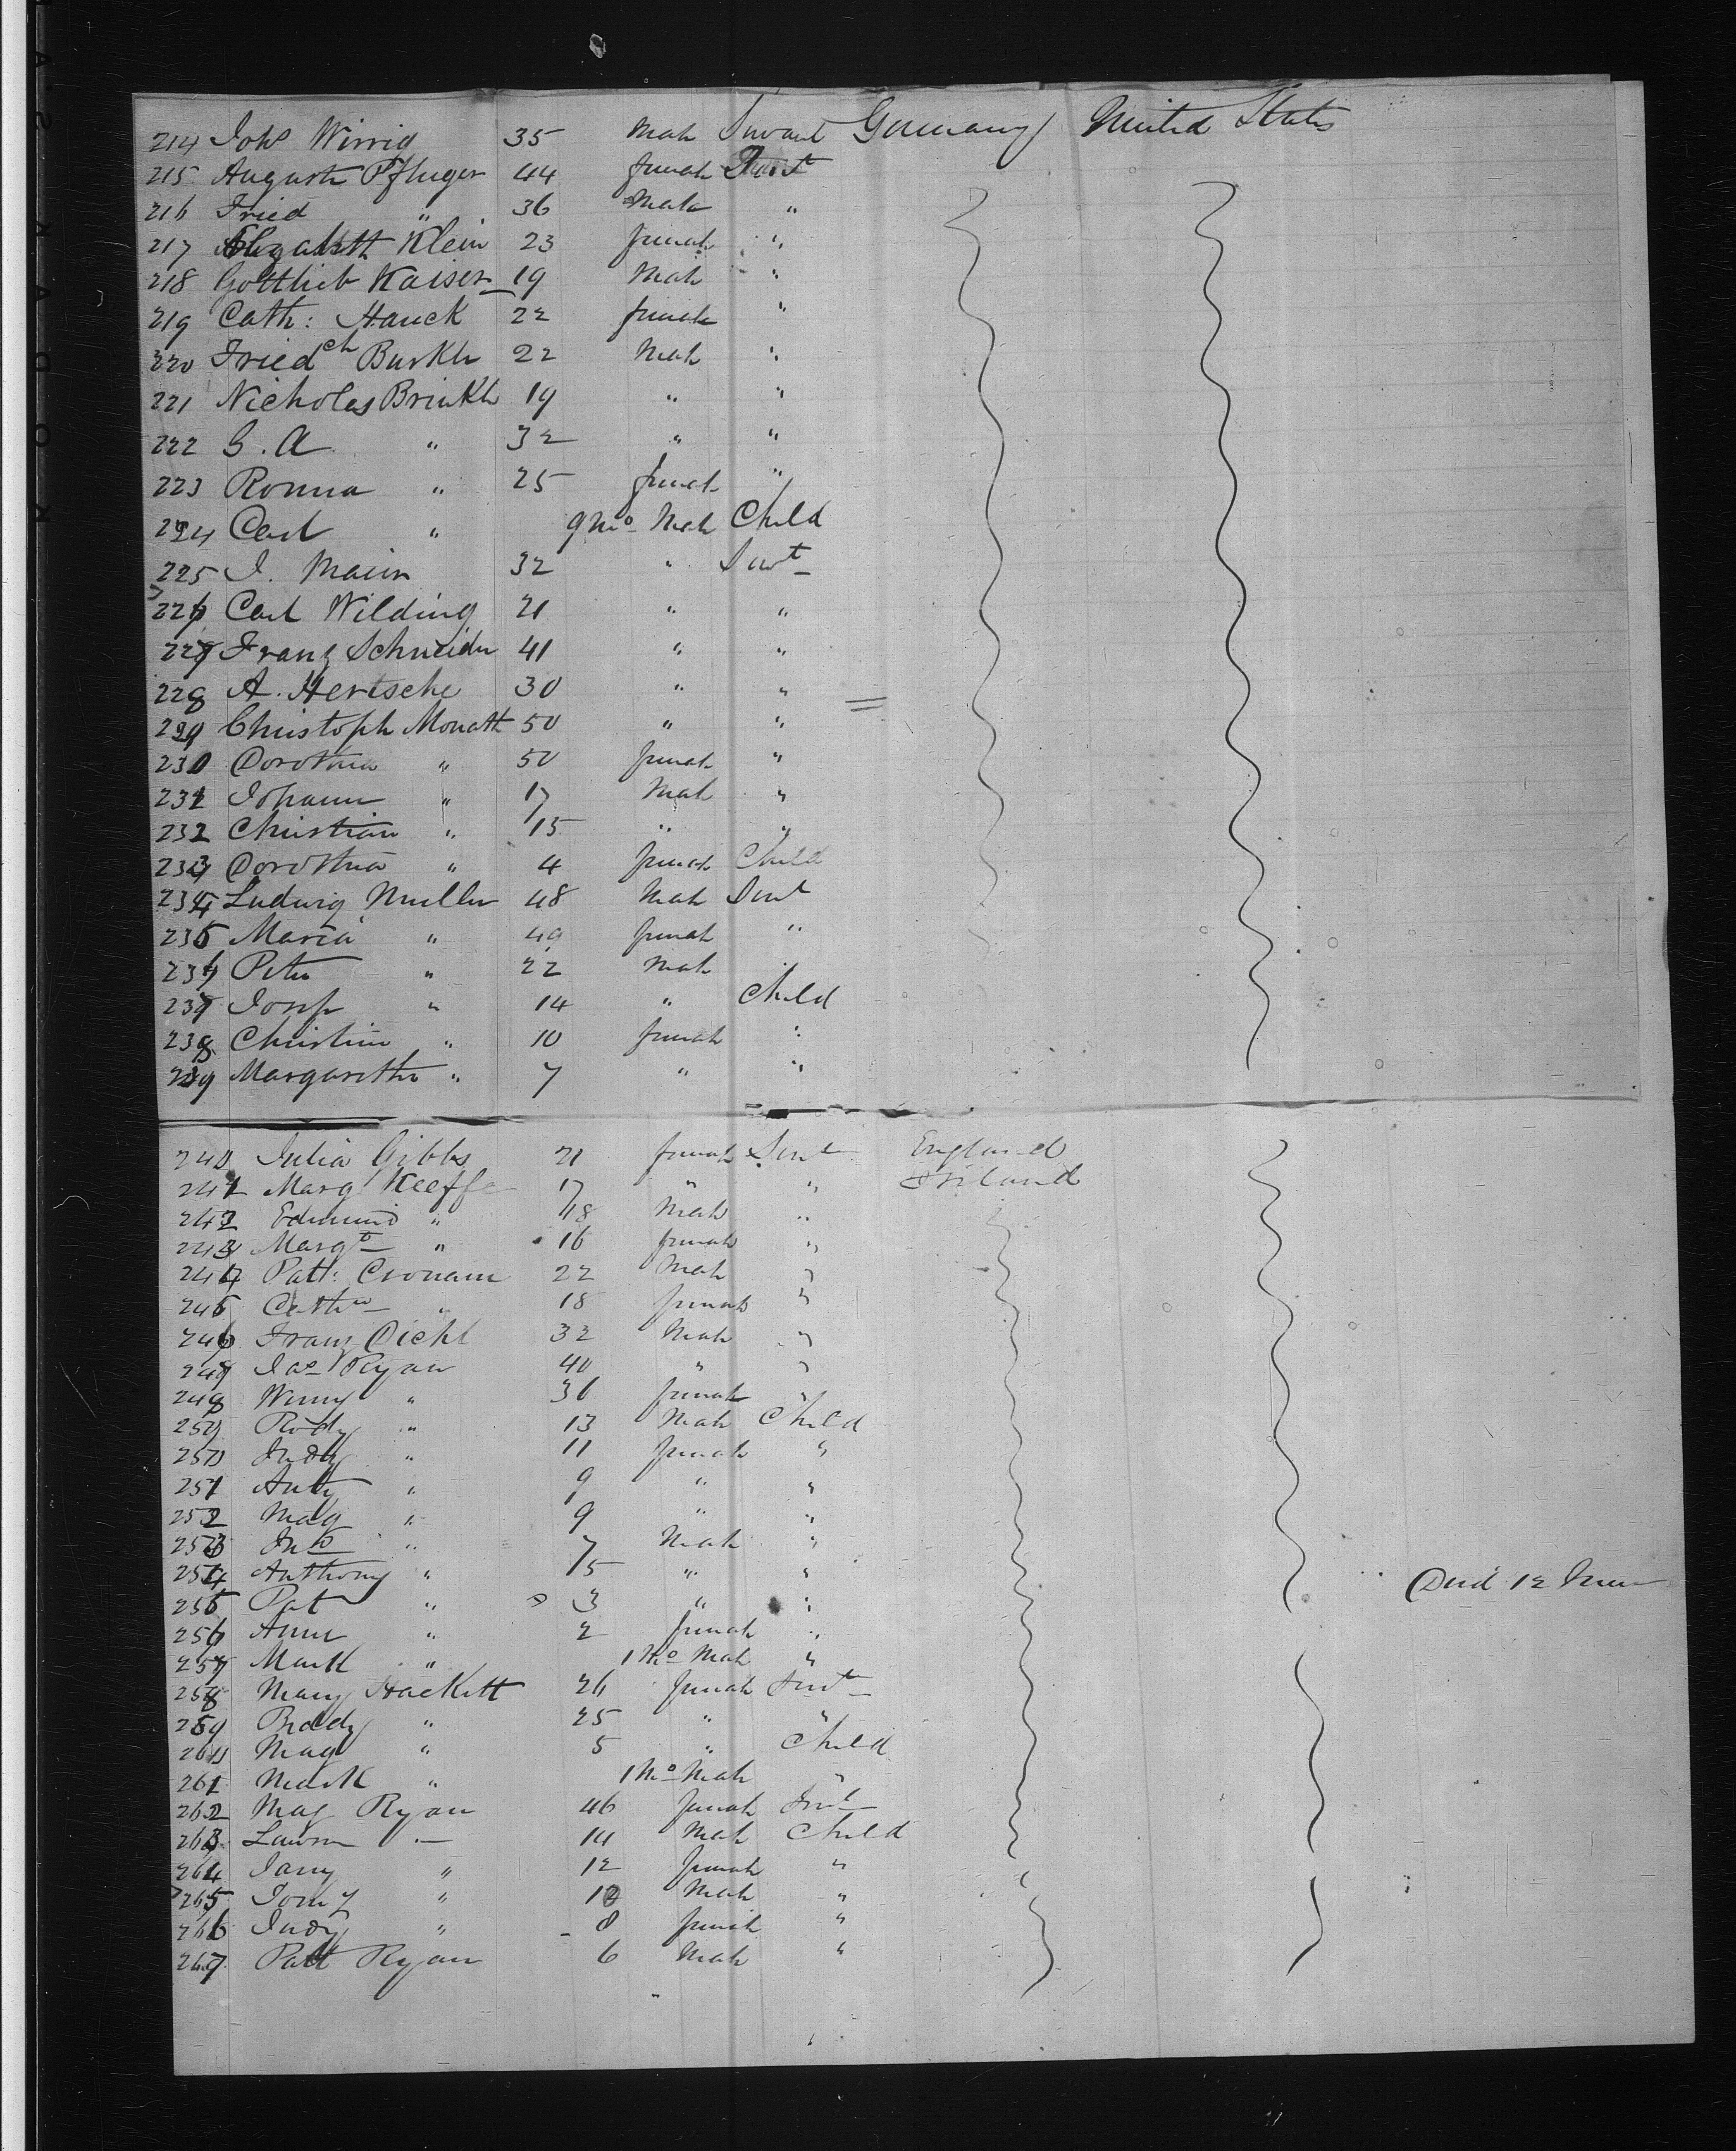 214 Johs Wirrig 35 Male Servant Germany United States
215 Augusta Pfluger 44 female Servt
216 Fried " 36 Male "
217 Elizabeth Klein 23 female "
218 Gottlieb Kaiser 19 Male "
219 Cath: Hauck 22 female "
220 Friedch Burkle 22 Male "
221 Nicholas Brinkle 19 " "
222 G. A " 32 " "
223 Ronna " 25 female "
224 Carl " 9 Mo Male Child
225 I. Maier 32 " Servt
226 Carl Wilding 21 " "
227 Franz Schneider 41 " "
228 A. Hertsche 30 " "
229 Christoph Monath 50 " "
230 Dorothea " 50 female "
231 Johann " 17 Male "
232 Christian " 15 " "
233 Dorothea " 4 female Child
234 Ludwig Muller 48 Male Servt
235 Maria " 49 female "
236 Peter " 22 Male "
237 Josep " 14 " Child
238 Christine " 10 female "
239 Margaretha " 7 " "
240 Julia Gibbs 21 female Servt England
241 Marg Keeffe 17 " " Ireland
242 Edmund " 18 Male "
243 Margt " 16 female "
244 Patt: Cronam 22 Male "
245 Cathe " 18 female "
246 Franz Dichl 32 Male "
247 Jas Ryan 40 " "
248 Winny " 36 female "
249 Rody " 13 Male Child
250 Judy " 11 female "
251 Anty " 9 " "
252 Mag " 9 " "
253 Jno " 7 Male "
254 Anthony " 5 " " Died 12 
255 Pat " 3 " "
256 Anne " 2 female "
257 Mark " 1 Mo Male "
258 Mary Hackett 26 female Servt
259 Biddy " 25 " "
260 Mag " 5 " Child
261 Mark " 1 Mo Male "
262 Mag Ryan 46 female Servt
263 Lawrn " 14 Male Child
264 Jany " 12 female "
265 Tomy " 12 Male "
266 Judy " 8 female "
267 Patt Ryan 6 Male "